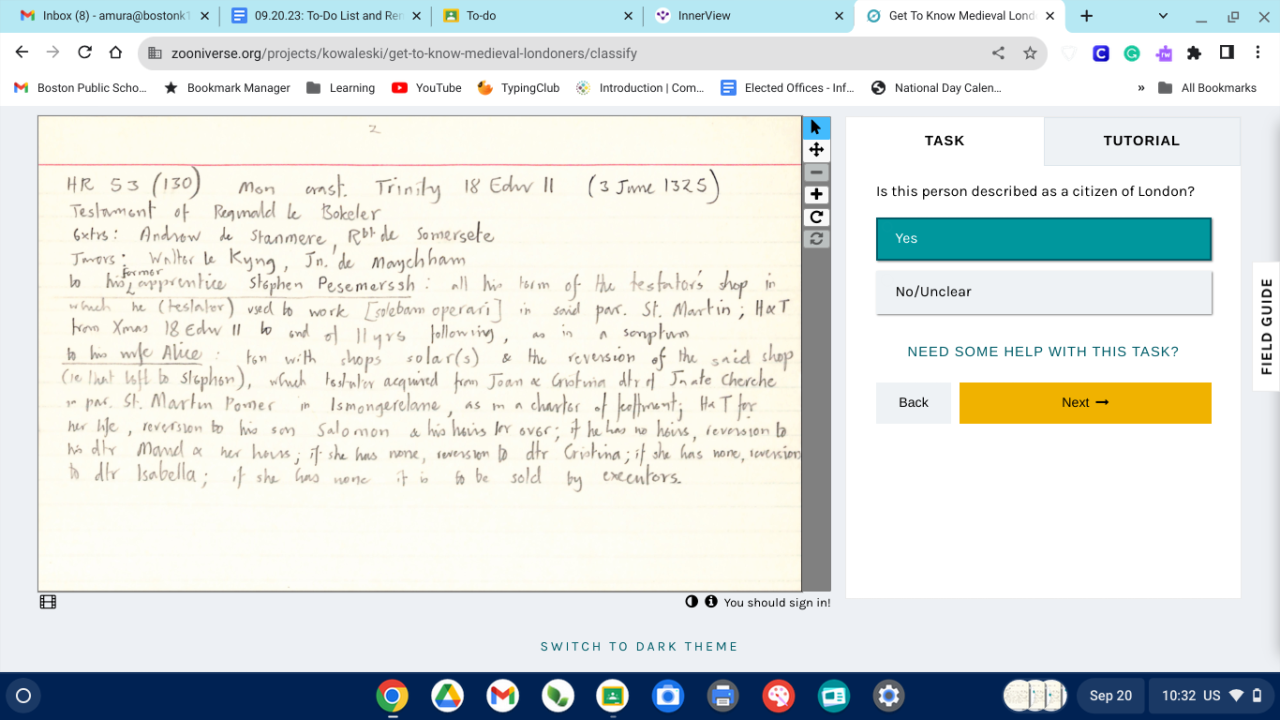 Inbox (8) - amura@bostonk1
09.20.23: To-Do List and Ren
To-do
InnerView
Get To Know Medieval Lond
zooniverse.org/projects/kowaleski/get-to-know-medieval-londoners/classify
Boston Public Scho...
Bookmark Manager
Learning
YouTube
TypingClub
Introduction | Com...
Elected Offices - Inf...
National Day Calen...
»
All Bookmarks
2
HR 53 (130) Mon aast. Trinity 18 Edw II (3 June 1325)
Testament of Reginald le Bokeler
Extrs: Andrew de Stanmere, Rbt de Somersete
Juors: Walter le Kyng, Jn. de Maychham
former
to his apprentice Stephen Pesemerssh: all his term of the testator's shop in
which he (testator) used to work [solebam operari] in said par. St. Martin; H&T
from Xmas 18 Edw II to end of 11 yrs following, as in a scriptum
to his wife Alice: ten with shops solar(s) & the reversion of the said shop
(ie that left to Stephen), which testator acquired from Joan & Cristina dtr of Jn ate Cherche
in par. St. Martin Pomer in Ismongerelane, as in a charter of feoffment; H&T for
her life, reversion to his son Salomon & his heirs for ever; if he has no heirs, reversion to
his dtr Maud & her heirs; if she has none, reversion to dtr Cristina; if she has none, reversion
to dtr Isabella; if she has none it is to be sold by executors.
You should sign in!
SWITCH TO DARK THEME
TASK
TUTORIAL
Is this person described as a citizen of London?
Yes
No/Unclear
NEED SOME HELP WITH THIS TASK?
Back
Next →
FIELD GUIDE
Sep 20
10:32 US